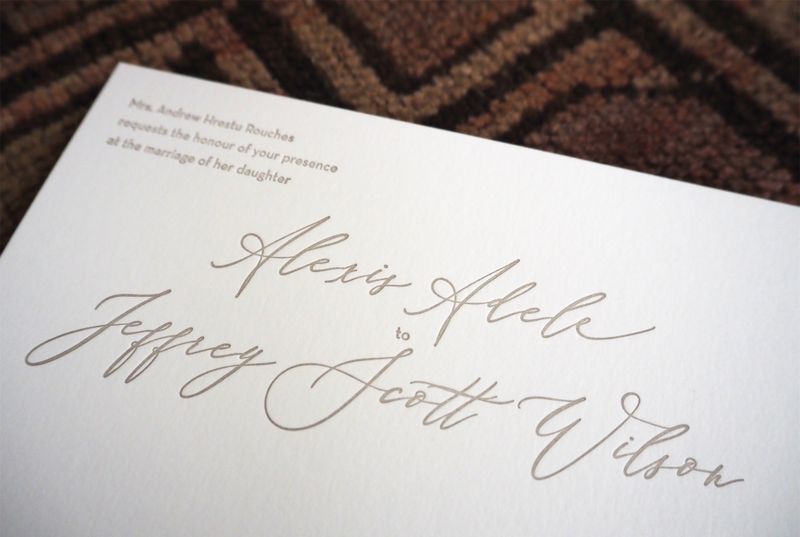 Mrs. Andrew Hrestu Rouches
requests the honour of your presence
at the marriage of her daughter
Alexis Adele
to
Jeffrey Scott Wilson